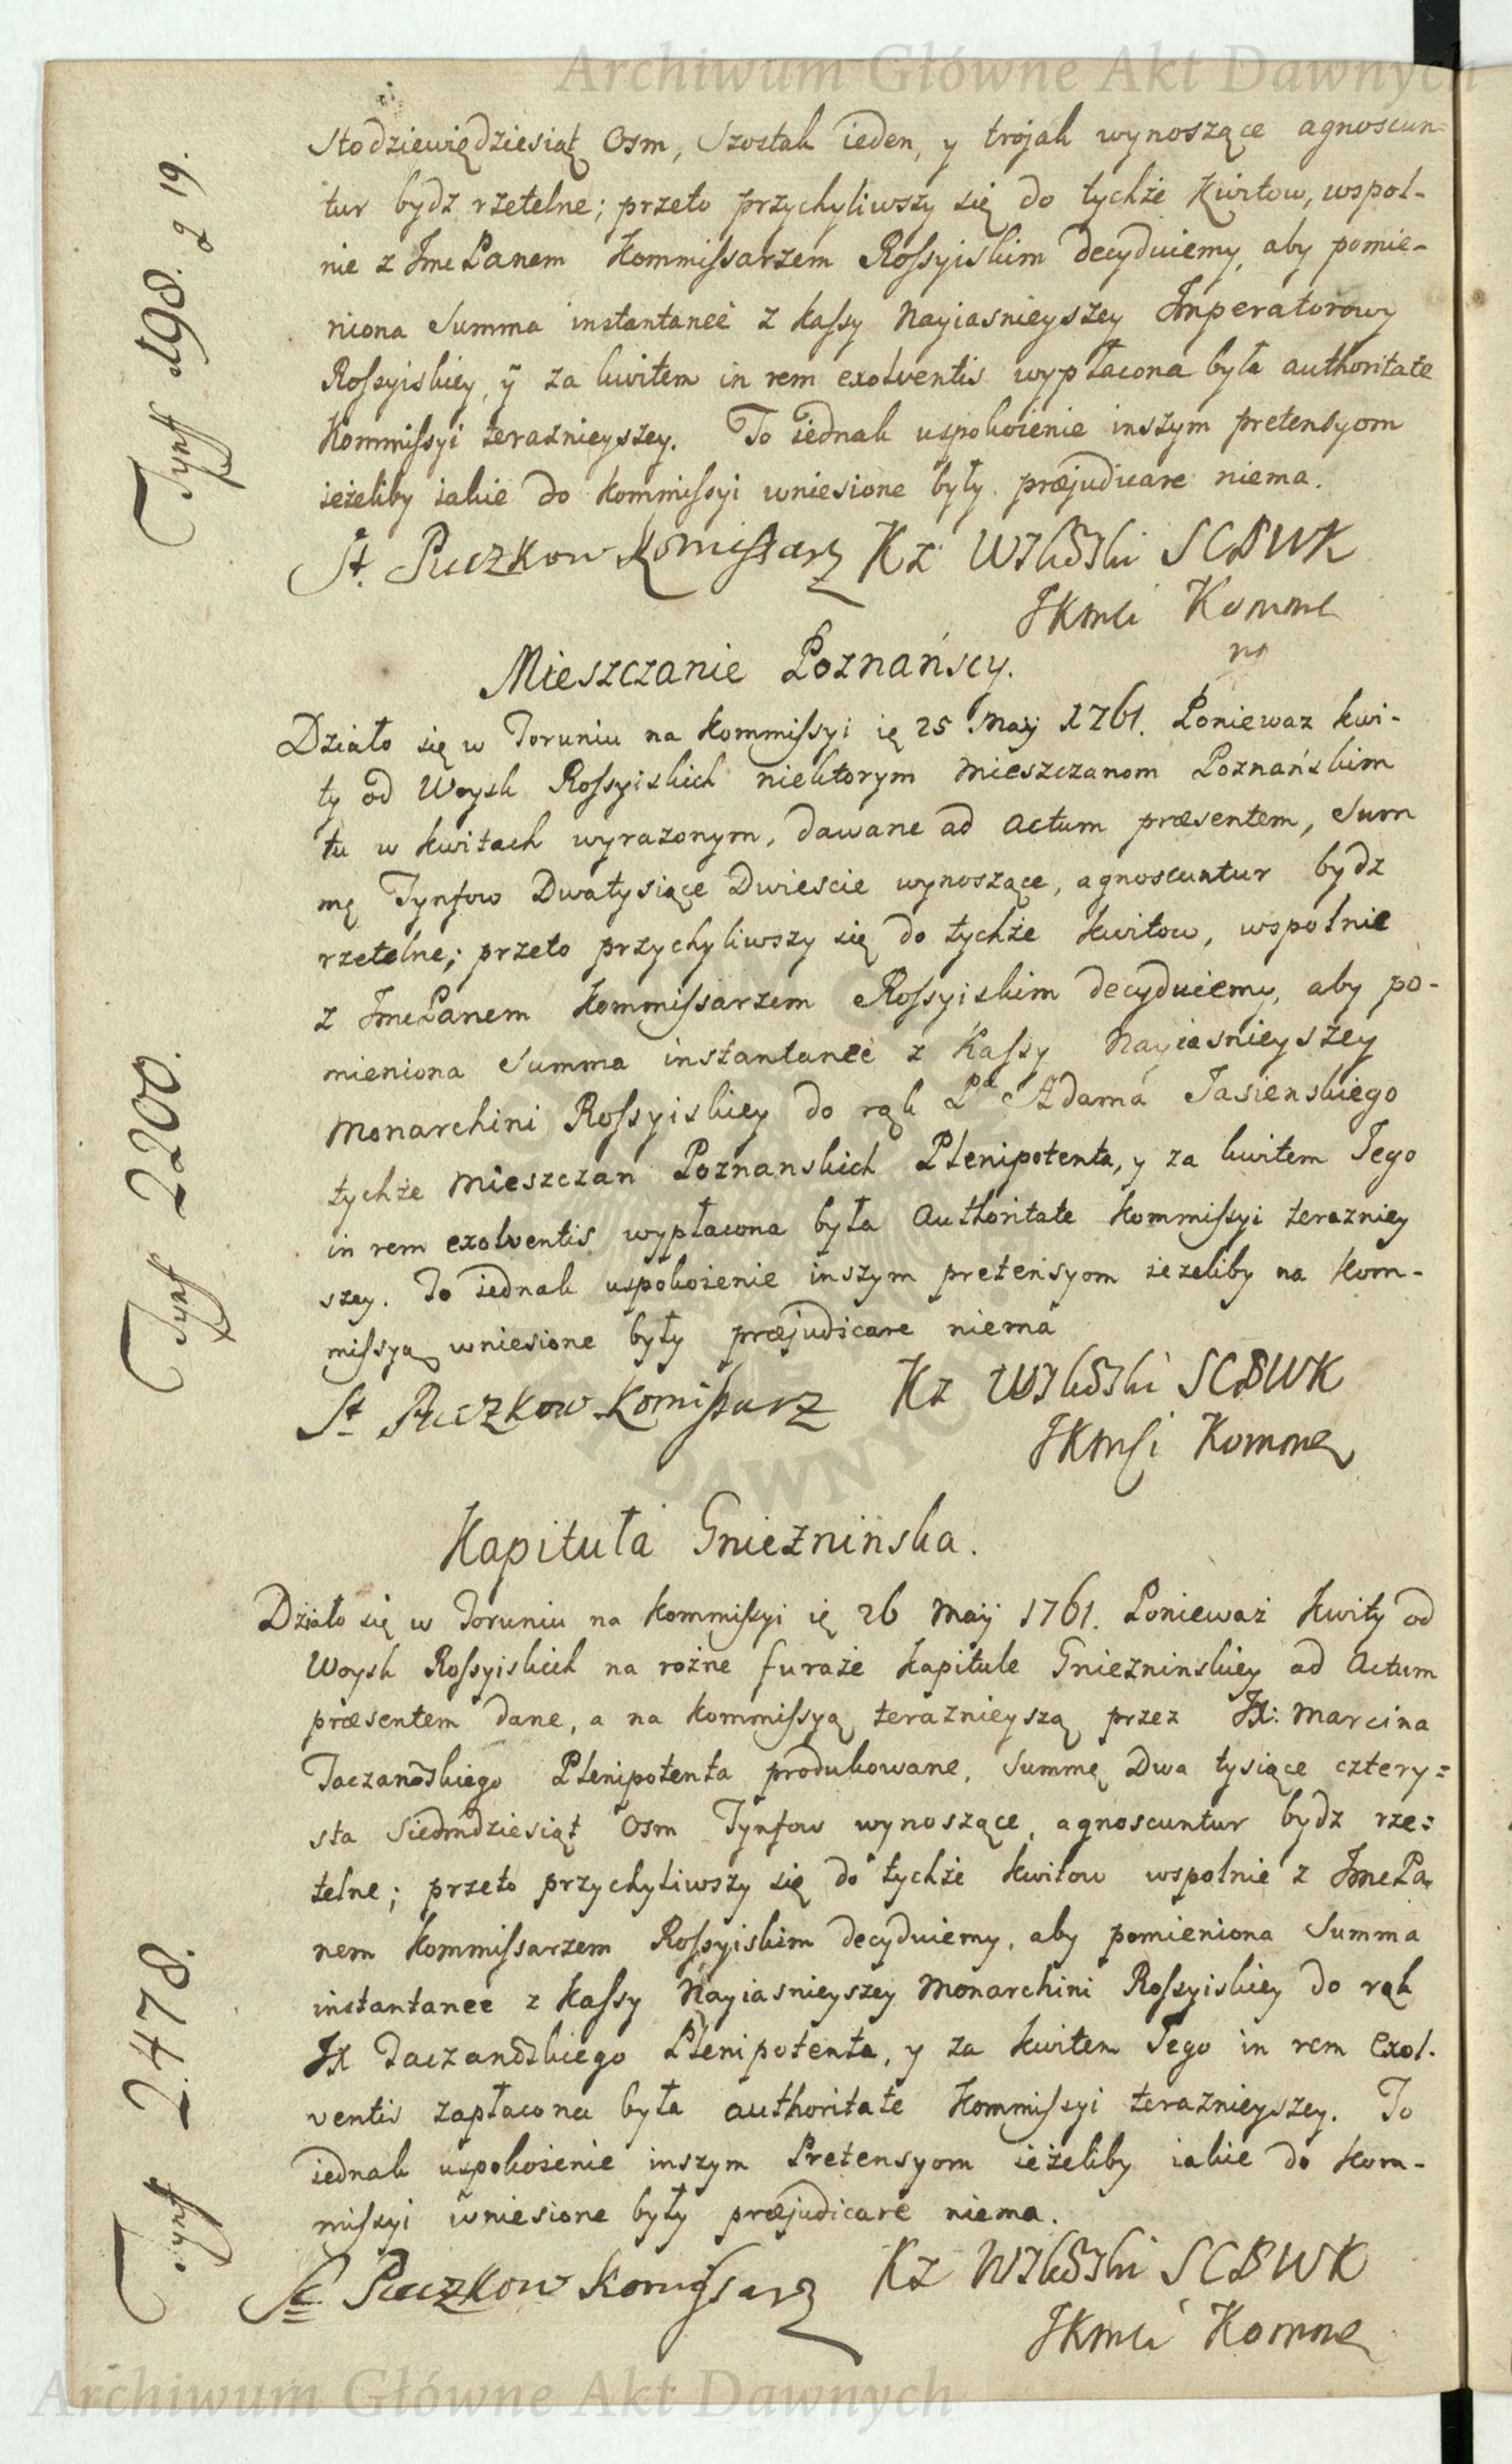 Archiwum Główne Akt Dawnych
Stodziewiędziesiąt Osm, Szostak ieden, y trojak wynoszące agnoscun=
tur bydz rzetelne; przeto przychyliwszy się do tychże Kwitow, wspol-
nie z JmcPanem Kommissarzem Rossyiskim decyduiemy, aby pomie-
niona Summa instantanee z kassy Nayiasnieyszey Imperatorowy
Rossyiskiey, ÿ za kwitem in rem exolventis wypłacona była authoritate
Kommissyi teraznieyszey. To iednak uspokoienie inszym pretensyom
ieżeliby iakie do Kommissyi wniesione były præjudicare niema.
Tynff 198. g 19.
St. Puczkow Komissarz Kz SCBWK
JKmci Komme
Mieszczanie Poznańscy.
Działo się w Toruniu na Kommissyi ię 25 Maÿ 1761. Poniewaz kwi-
ty od Woysk Rossyiskich niektorym Mieszczanom Poznańskim
tu w kwitach wyrazonym, dawane ad Actum præsentem, Sum
mę Tynfow Dwatysiące Dwiescie wynoszące, agnoscuntur bydz
rzetelne; przeto przychyliwszy się do tychże kwitow, wspolnie
z JmcPanem Kommissarzem Rossyiskim decyduiemy, aby po-
mieniona Summa instantanee z Kassy Nayiasnieyszey
Monarchini Rossyiskiey do rąk Pa Adama Jasienskiego
tychże Mieszczan Poznanskich Plenipotenta, y za kwitem Jego
in rem exolventis wypłacona była Authoritate Kommissyi terazniey
szey. To iednak uspokoienie inszym pretensyom iezeliby na Kom-
missyą wniesione były præjudicare niema
Tynff 2200.
St Puczkow Komissarz Kz SCBWK
JKmci Komme
Kapituła Gnieznińska.
Działo się w Toruniu na Kommissyi ię 26 Maÿ 1761. Ponieważ Kwity od
Woysk Rossyiskich na rożne furaże Kapitule Gniezninskiey ad Actum
præsentem dane, a na Kommissyą teraznieyszą przez JX: Marcina
Taczanowskiego Plenipotenta produkowane, Summę Dwa tysiące cztery=
sta Siedmdziesiąt Osm Tynfow wynoszące, agnoscuntur bydz rze=
telne; przeto przychyliwszy się do tychże kwitow wspolnie z JmcPa
nem Kommissarzem Rossyiskim decyduiemy, aby pomieniona Summa
instantanee z Kassy Nayiasnieyszey Monarchini Rossyiskiey do rąk
JX Taczanowskiego Plenipotenta, y za kwitem Jego in rem Exol-
ventis zapłacona była authoritate Kommissyi teraznieyszey. To
iednak uspokoienie inszym Pretensyom ieżeliby iakie do Kom-
missyi wniesione były præjudicare niema.
Tynff 2478.
St Puczkow Komissarz Kz SCBWK
JKmci Komme
Archiwum Główne Akt Dawnych